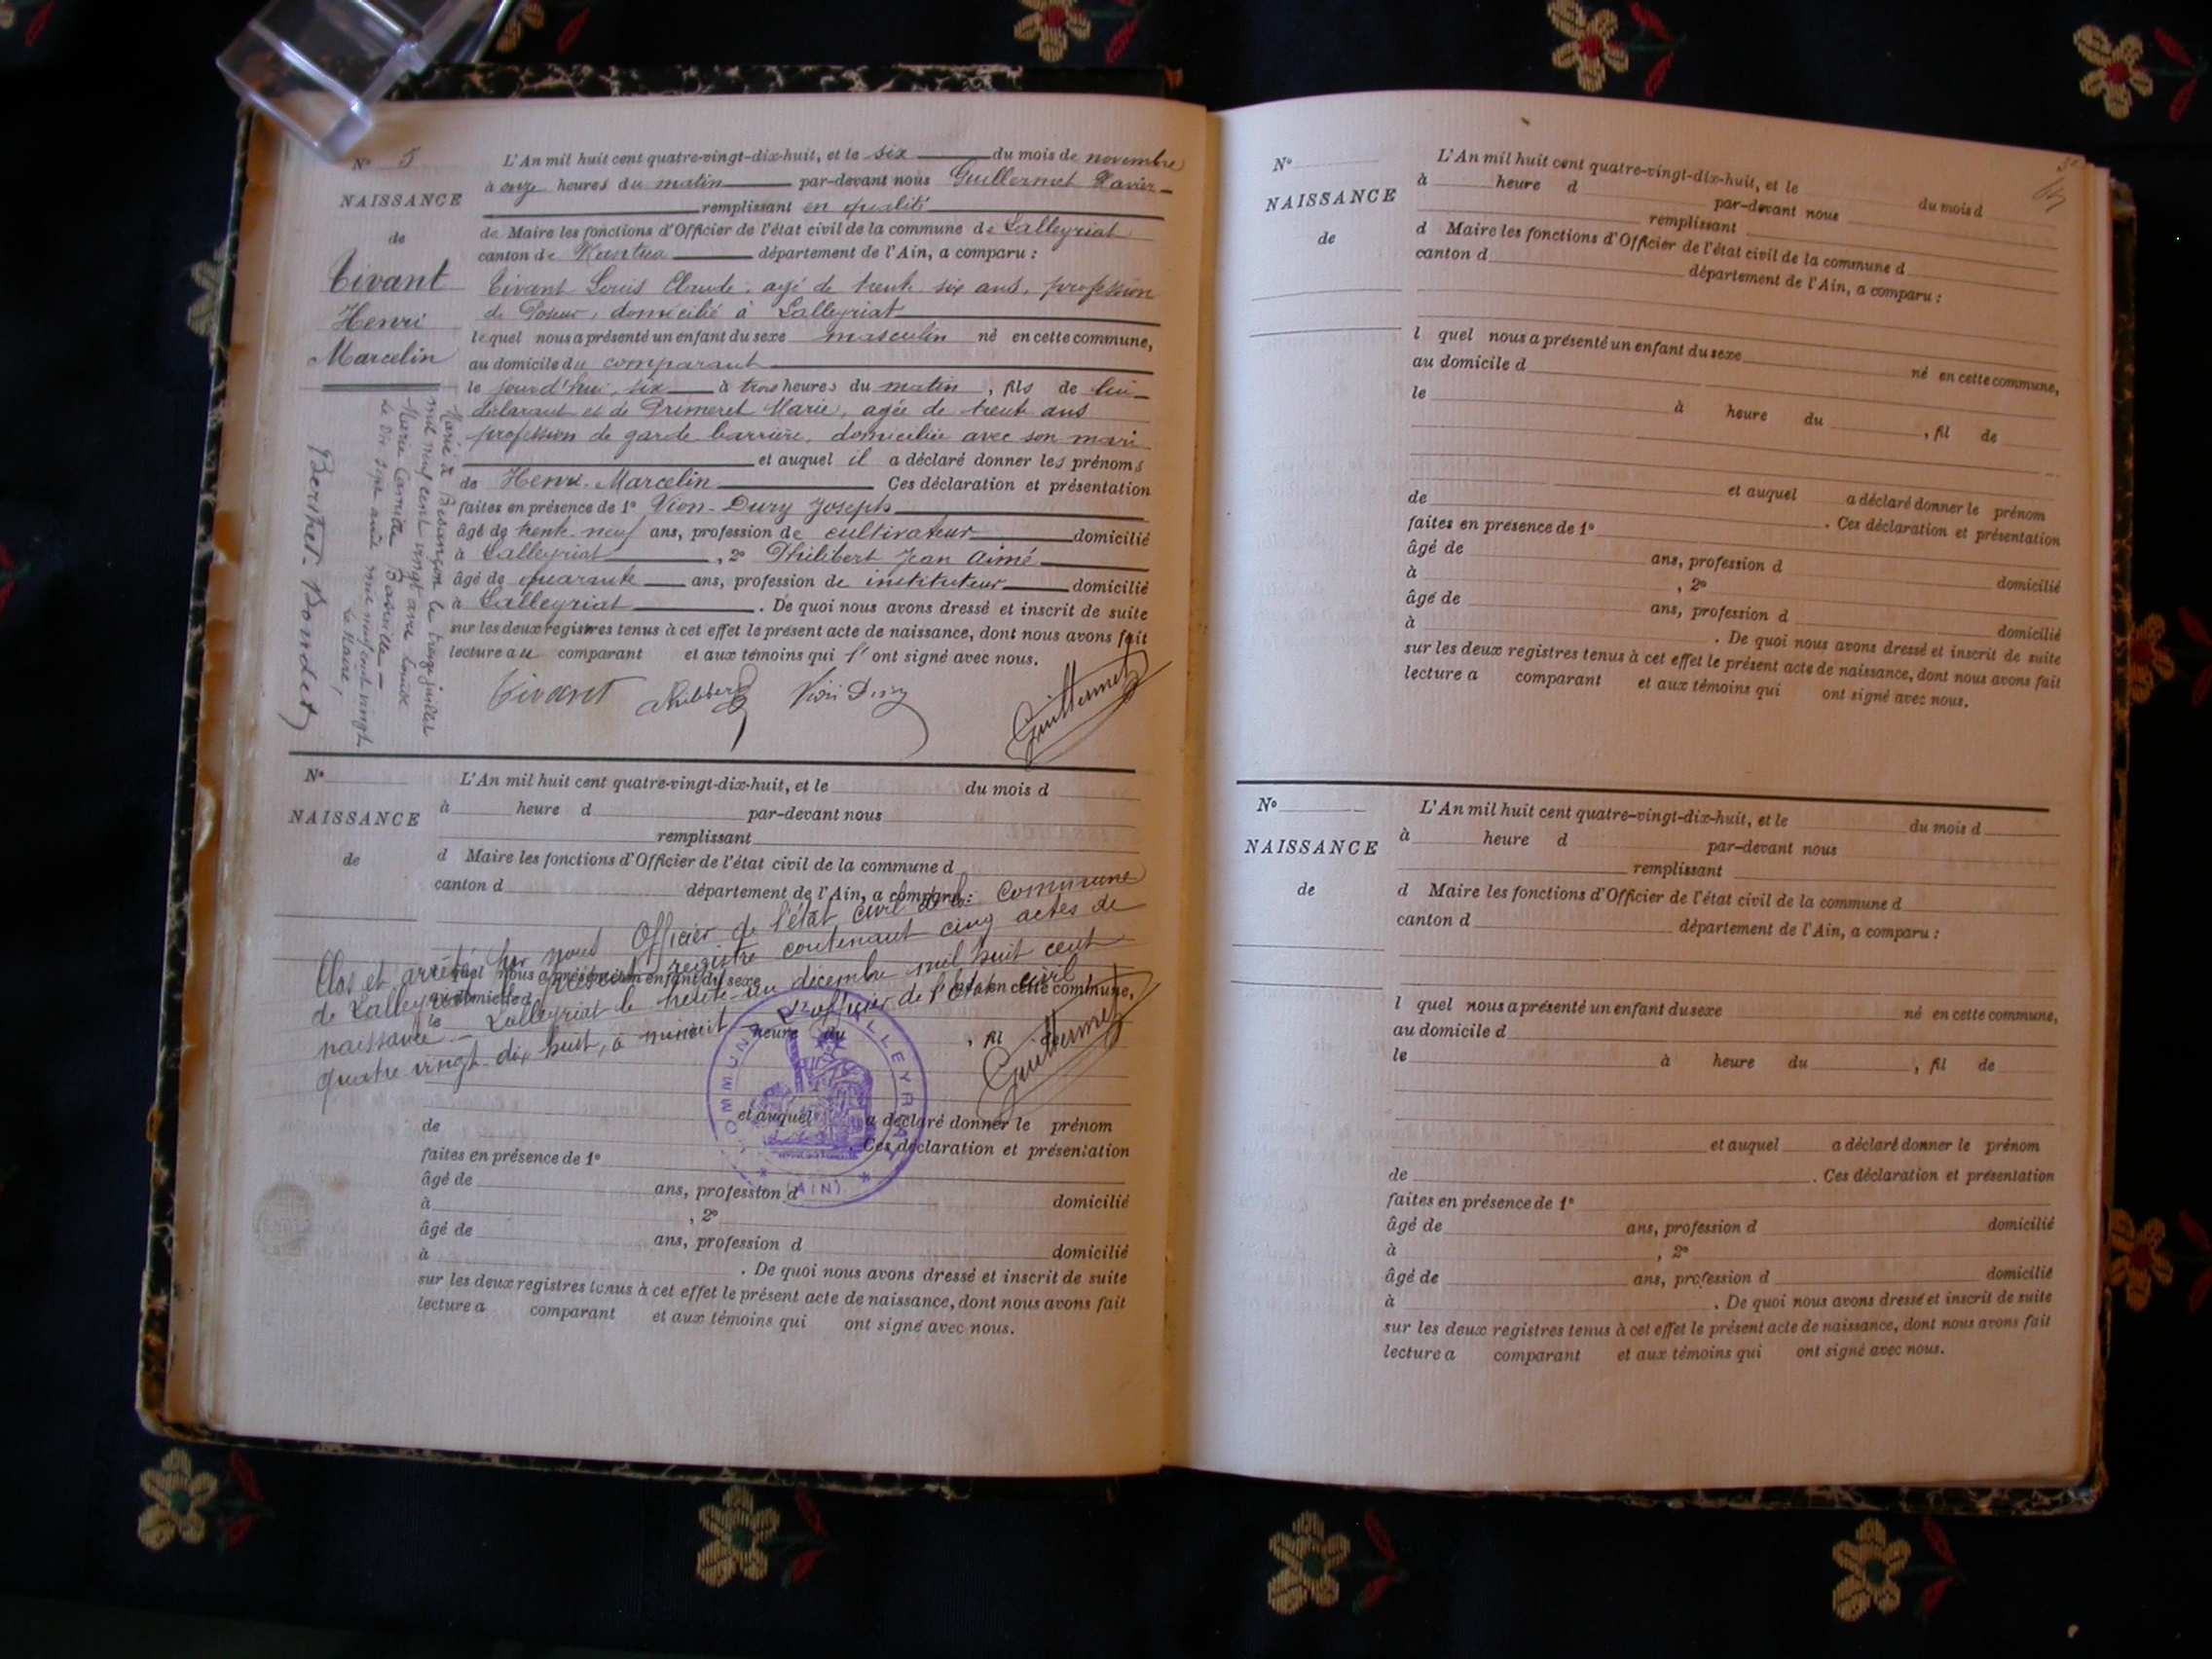 N° 5
NAISSANCE
de
Tivant
Henri
Marcelin
L'An mil huit cent quatre-vingt-dix-huit, et le six du mois de novembre
à onze heures du matin par-devant nous Guillermet Xavier
remplissant en qualité
de Maire les fonctions d'Officier de l'état civil de la commune de Lalleyriat
canton de Nantua département de l'Ain, a comparu :
Tivant Louis Claude, agé de trente six ans, profession
de Poseur, domicilié à Lalleyriat
lequel nous a présenté un enfant du sexe masculin né en cette commune,
au domicile du comparant
le jourd'hui, six à trois heures du matin, fils de lui
déclarant et de Primeret Marie, agée de trente ans
profession de garde-barrière, domiciliée avec son mari
et auquel il a déclaré donner les prénoms
de Henri-Marcelin Ces déclaration et présentation
faites en présence de 1° Vion-Dury Joseph
âgé de trente-neuf ans, profession de cultivateur domicilié
à Lalleyriat, 2° Philibert Jean Aimé
âgé de quarante ans, profession de instituteur domicilié
à Lalleyriat. De quoi nous avons dressé et inscrit de suite
sur les deux registres tenus à cet effet le présent acte de naissance, dont nous avons fait
lecture au comparant et aux témoins qui l' ont signé avec nous.
Tivant Philibert Vion Dury Guillermet
Marié à Besançon le treize juillet
mil neuf cent vingt avec Louise
Marie Camille
Le Dix sept août mil neuf cent vingt
Le Maire,
Berthet-Bondet
N°
NAISSANCE
de
L'An mil huit cent quatre-vingt-dix-huit, et le du mois d
à heure d par-devant nous
remplissant
d Maire les fonctions d'Officier de l'état civil de la commune d
canton d département de l'Ain, a comparu :
Clos et arrêté par nous Officier de l'état civil de la commune
de Lalleyriat le présent registre contenant cinq actes de
naissance - Lalleyriat le trente-un décembre mil huit cent
quatre vingt dix huit, à minuit
L'officier de l'état civil
Guillermet
lquel nous a présenté un enfant du sexe
né en cette commune,
au domicile d
le heure du , fil de
COMMUNE DE LALLEYRIAT
(AIN)
et auquel a déclaré donner le prénom
de Ces déclaration et présentation
faites en présence de 1°
âgé de ans, profession d domicilié
à , 2°
âgé de ans, profession d domicilié
à . De quoi nous avons dressé et inscrit de suite
sur les deux registres tenus à cet effet le présent acte de naissance, dont nous avons fait
lecture a comparant et aux témoins qui ont signé avec nous.
N°
NAISSANCE
de
L'An mil huit cent quatre-vingt-dix-huit, et le du mois d
à heure d par-devant nous
remplissant
d Maire les fonctions d'Officier de l'état civil de la commune d
canton d département de l'Ain, a comparu :
l quel nous a présenté un enfant du sexe né en cette commune,
au domicile d
le à heure du , fil de
et auquel a déclaré donner le prénom
de . Ces déclaration et présentation
faites en présence de 1°
âgé de ans, profession d domicilié
à , 2°
âgé de ans, profession d domicilié
à . De quoi nous avons dressé et inscrit de suite
sur les deux registres tenus à cet effet le présent acte de naissance, dont nous avons fait
lecture a comparant et aux témoins qui ont signé avec nous.
N°
NAISSANCE
de
L'An mil huit cent quatre-vingt-dix-huit, et le du mois d
à heure d par-devant nous
remplissant
d Maire les fonctions d'Officier de l'état civil de la commune d
canton d département de l'Ain, a comparu :
l quel nous a présenté un enfant du sexe né en cette commune,
au domicile d
le à heure du , fil de
et auquel a déclaré donner le prénom
de . Ces déclaration et présentation
faites en présence de 1°
âgé de ans, profession d domicilié
à , 2°
âgé de ans, profession d domicilié
à . De quoi nous avons dressé et inscrit de suite
sur les deux registres tenus à cet effet le présent acte de naissance, dont nous avons fait
lecture a comparant et aux témoins qui ont signé avec nous.